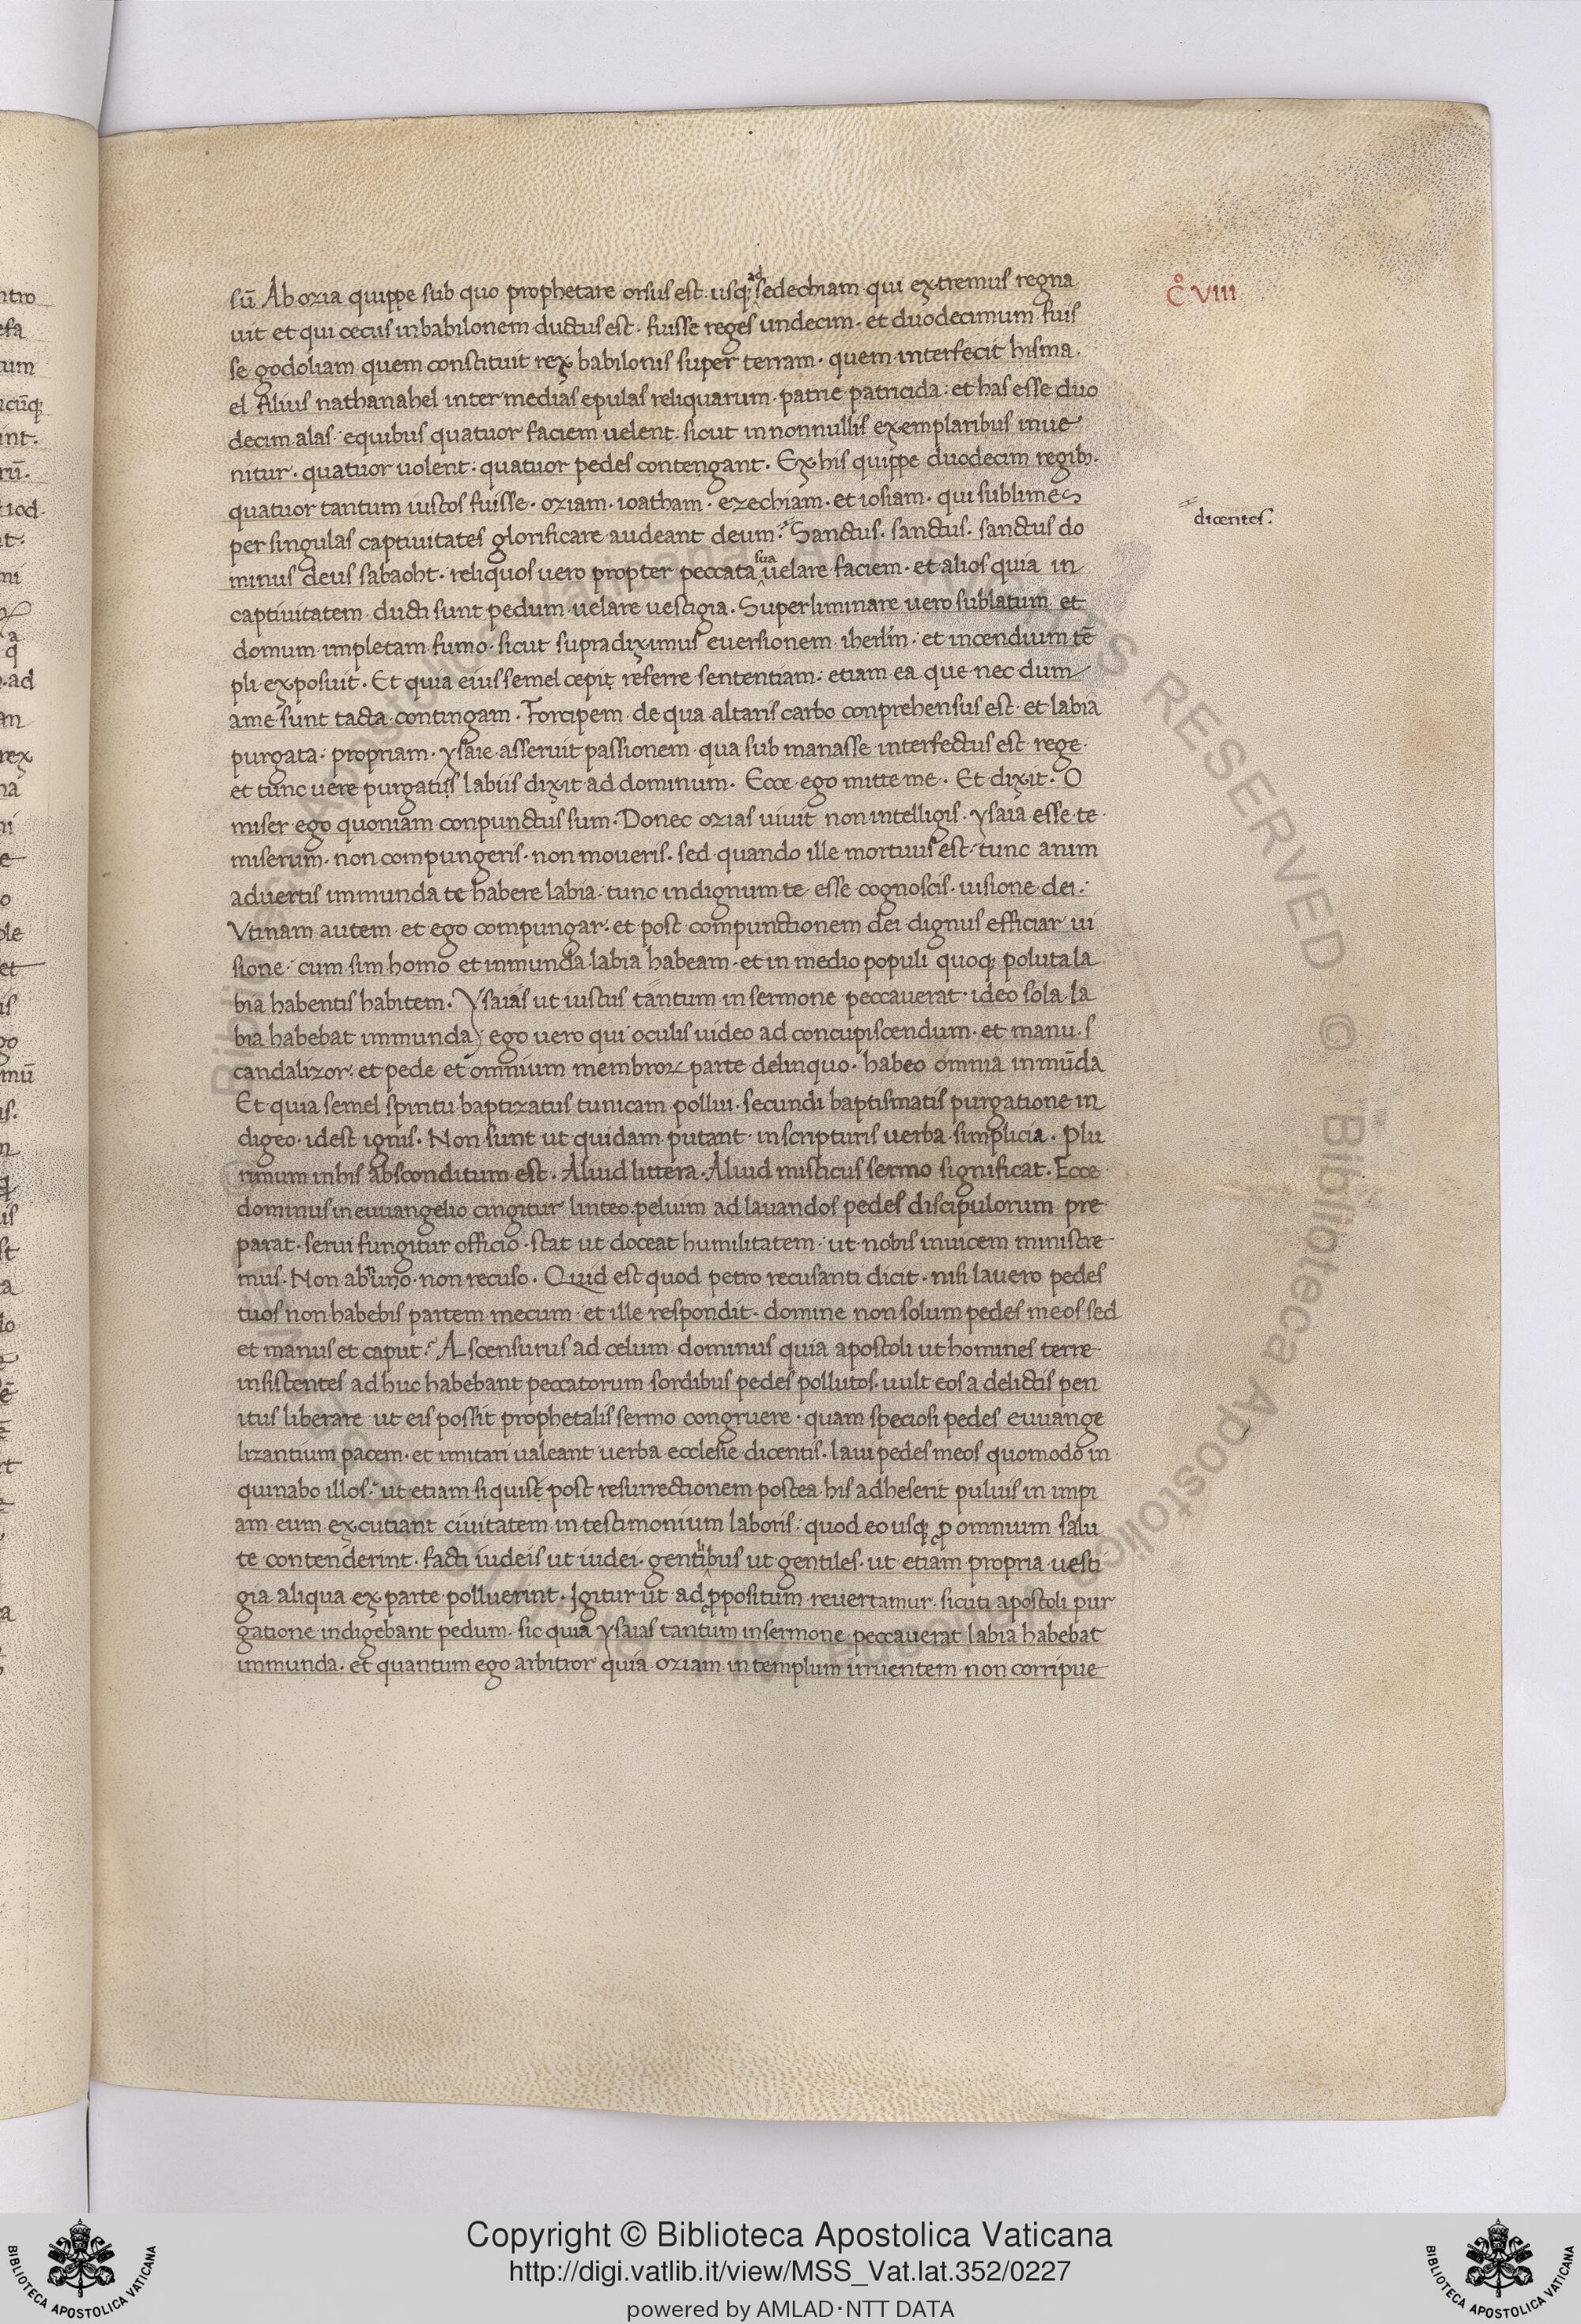 C̊ VIII
sū Ab ozia quippe sub quo prophetare orsus est. usq; ad sedechiam qui extremus regna
uit et qui cecus inbabilonem ductus est. fuisse reges undecim. et duodecimum fuis
se godoliam quem constituit rex babilonis super terram. quem interfecit hisma.
el Alius nathanahel inter medias epulas reliquarum patrie patricida: et has esse duo
decim alas: equibus quatuor faciem uelent. sicut innonnullis exemplaribus inue
nitur. quatuor uolent: quatuor pedes contengant. Ex his quippe duodecim regib;.
quatuor tantum iustos fuisse. oziam. ioatham. ezechiam. et iosiam. qui sublimes
dicentes.
per singulas captiuitates glorificare audeant deum: Sanctus. sanctus. sanctus do
minus deus sabaoht. reliquos uero propter peccata sua uelare faciem. et alios quia in
captiuitatem ducti sunt pedum uelare uestigia. Superliminare uero sublatum et
domum impletam fumo. sicut supradiximus euersionem iherl'm: et incendium tē
pli exposuit. Et quia eius semel cepit referre sententiam: etiam ea que nec dum
ame sunt tacta contingam. Forcipem de qua altaris carbo conprehensus est et labia
purgata: propriam. ysaie asseruit passionem qua sub manasse interfectus est rege.
et tunc uere purgatis labiis dixit ad dominum. Ecce ego mitte me. Et dixit. O
miser ego quoniam conpunctus sum. Donec ozias uiuit non intelligis. ysaia esse te
miserum. non compungeris. non moueris. sed quando ille mortuus est: tunc anim
aduertis immunda te habere labia: tunc indignum te esse cognoscis. uisione dei:
Vtinam autem et ego compungar. et post compunctionem dei dignus efficiar ui
sione: cum sim homo et inmunda labia habeam. et in medio populi quoq; poluta la
bia habentis habitem. Ysaias ut iustus tantum in sermone peccauerat. ideo sola la
bia habebat immunda; ego uero qui oculis uideo ad concupiscendum. et manu. s
candalizor. et pede et omnium membroꝝ parte delinquo. habeo omnia inmūda
Et quia semel spiritu baptizatus tunicam pollui. secundi baptismatis purgatione in
digeo. idest ignis. Non sunt ut quidam putant. inscripturis uerba simplicia. Plu
rimum inhis absconditum est. Aliud littera. Aliud misticus sermo significat. Ecce
dominus in euuangelio cingitur linteo peluim ad lauandos pedes discipulorum pre
parat. serui fungitur officio. stat ut doceat humilitatem: ut nobis inuicem ministre
mus. Non abnuo. non recuso. Quid est quod petro recusanti dicit. nisi lauero pedes
tuos non habebis partem mecum et ille respondit. domine non solum pedes meos sed
et manus et caput: Ascensurus ad celum dominus quia apostoli ut homines terre
insistentes adhuc habebant peccatorum sordibus pedes pollutos. uult eos a delictis pen
itus liberare ut eis possit prophetalis sermo congruere. quam speciosi pedes euuange
lizantium pacem. et imitari ualeant uerba ecclesie dicentis. laui pedes meos quomodo in
quinabo illos: ut etiam si quis post resurrectionem postea his adheserit puluis in impi
am eum excutiant ciuitatem in testimonium laboris: quod eo usq; ꝓ omnium salu
te contenderint. facti iudeis ut iudei. gentibus ut gentiles. ut etiam propria uesti
gia aliqua ex parte polluerint. Igitur ut ad ꝓpositum reuertamur. sicuti apostoli pur
gatione indigebant pedum. sic quia ysaias tantum in sermone peccauerat labia habebat
immunda. et quantum ego arbitror quia oziam in templum irruentem non corripue
Copyright © Biblioteca Apostolica Vaticana
http://digi.vatlib.it/view/MSS_Vat.lat.352/0227
powered by AMLAD·NTT DATA
BIBLIOTECA APOSTOLICA VATICANA
BIBLIOTECA APOSTOLICA VATICANA